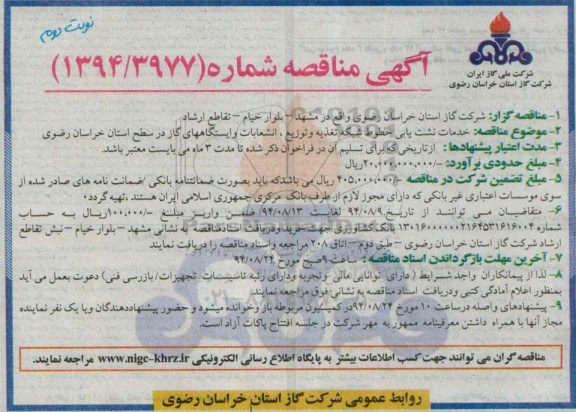 نوبت دوم
شرکت ملی گاز ایران
شرکت گاز استان خراسان رضوی
آگهی مناقصه شماره (۱۳۹۴/۳۹۷۷)
۱- مناقصه گزار: شرکت گاز استان خراسان رضوی واقع در مشهد – بلوار خیام – تقاطع ارشاد
۲- موضوع مناقصه: خدمات نشت یابی خطوط شبکه تغذیه و توزیع ، انشعابات وایستگاههای گاز در سطح استان خراسان رضوی
۳- مدت اعتبار پیشنهادها : از تاریخی که برای تسلیم آن در فراخوان ذکر شده تا مدت ۳ ماه می بایست معتبر باشد.
۴- مبلغ حدودی برآورد: ۲۰,۰۰۰,۰۰۰,۰۰۰/-ریال
۵- مبلغ تضمین شرکت در مناقصه ۴۰۵,۰۰۰,۰۰۰/- ریال می باشدکه باید بصورت ضمانتنامه بانکی /ضمانت نامه های صادر شده از
سوی موسسات اعتباری غیر بانکی که دارای مجوز لازم از طرف بانک مرکزی جمهوری اسلامی ایران هستند ،تهیه گردد
۶- متقاضیان می توانند از تاریخ ۹۴/۰۸/۹ لغایت ۹۴/۰۸/۱۳ ضمن واریز مبلغ ۱۰۰,۰۰۰/-ریال به حساب
شماره بانک کشاورزی جهت خرید ودریافت اسنادمناقصه به نشانی مشهد – بلوار خیام – نبش تقاطع
ارشاد شرکت گاز استان خراسان رضوی – طبق دوم – اتاق ۲۰۸ مراجعه واسناد مناقصه را دریافت نمایند
۷- آخرین مهلت بازگرداندن اسناد مناقصه : ساعت ۹صبح مورخ ۹۴/۰۸/۲۴
۸- لذا از پیمانکاران واجد شرایط ( دارای توانایی مالی وتجربه ودارای رتبه تاسیسات تجهیزات/ بازرسی فنی) دعوت بعمل می آید
بمنظور اعلام آمادگی کتبی ودریافت اسناد مناقصه به نشانی فوق مراجعه نمایند.
۹- پیشنهادهای واصله درساعت ۱۰ مورخ ۹۴/۰۸/۲۴ درکمیسیون مربوطه باز وخوانده میشود و حضور پیشنهاددهندگان ویا یک نفر نماینده
مجاز آنها با همراه داشتن معرفینامه ممهور به مهر شرکت در جلسه افتتاح پاکات آزاد است.
مناقصه گران می توانند جهت کسب اطلاعات بیشتر به پایگاه اطلاع رسانی الکترونیکی www.nigc-khrz.ir مراجعه نمایند.
روابط عمومی شرکت گاز استان خراسان رضوی